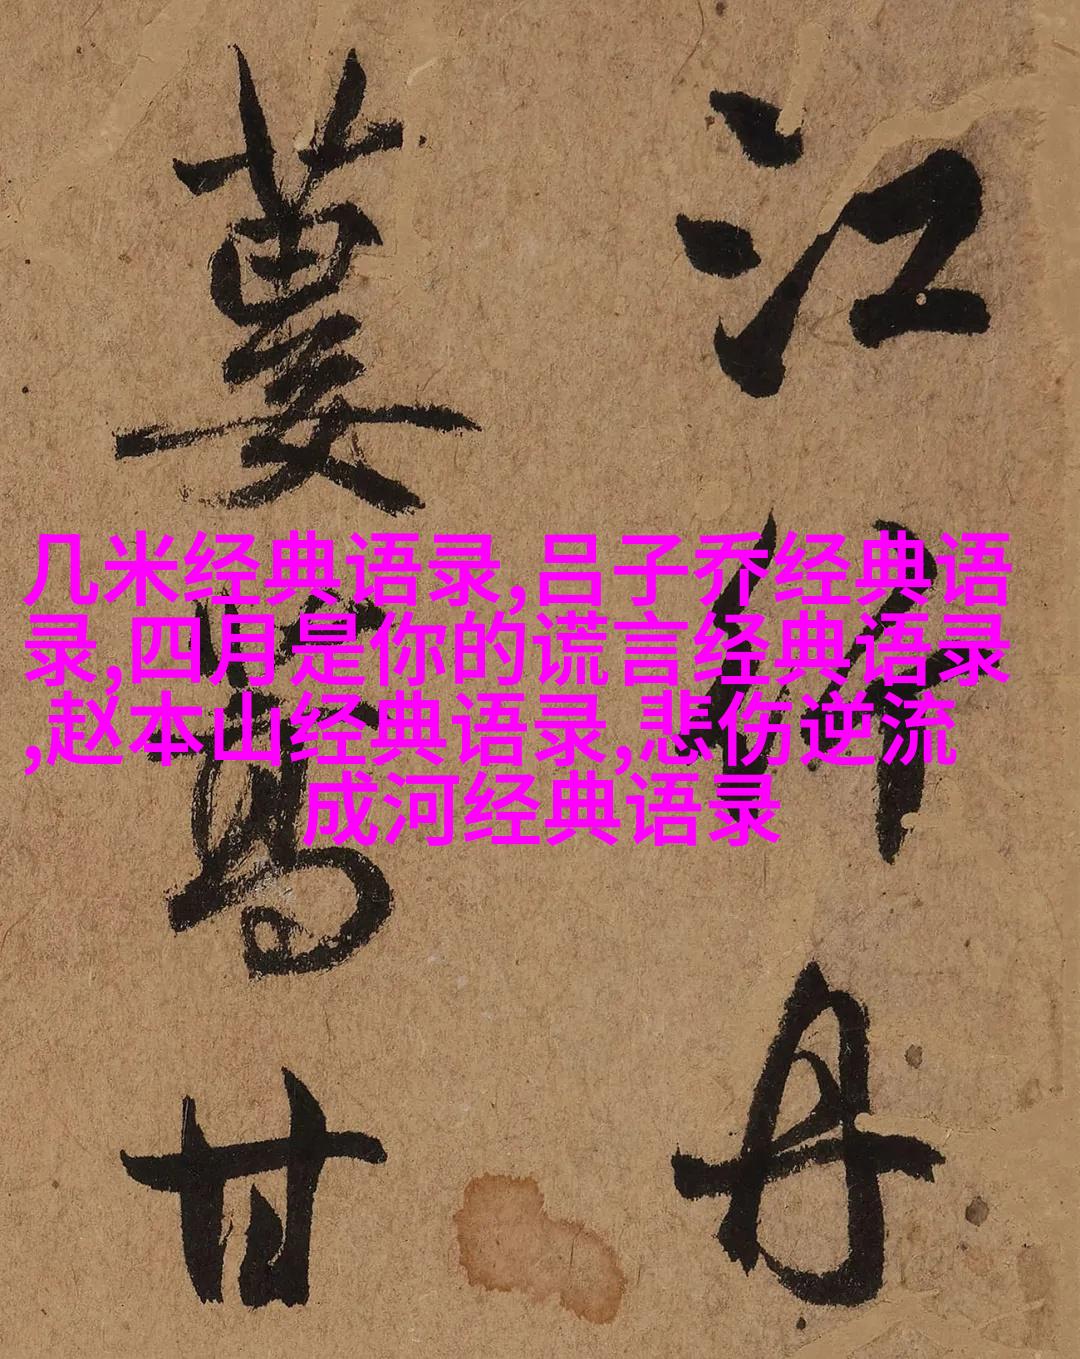 江 丹
蔞蒿甘
几米经典语录,吕子乔经典语
录,四月是你的谎言经典语录
,赵本山经典语录,悲伤逆流
成河经典语录